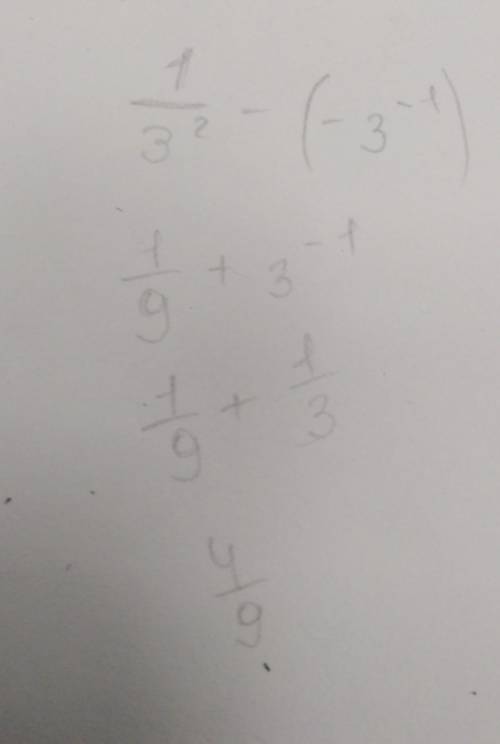 1/3² - (-3⁻¹)
1/9 + 3⁻¹
1/9 + 1/3
4/9